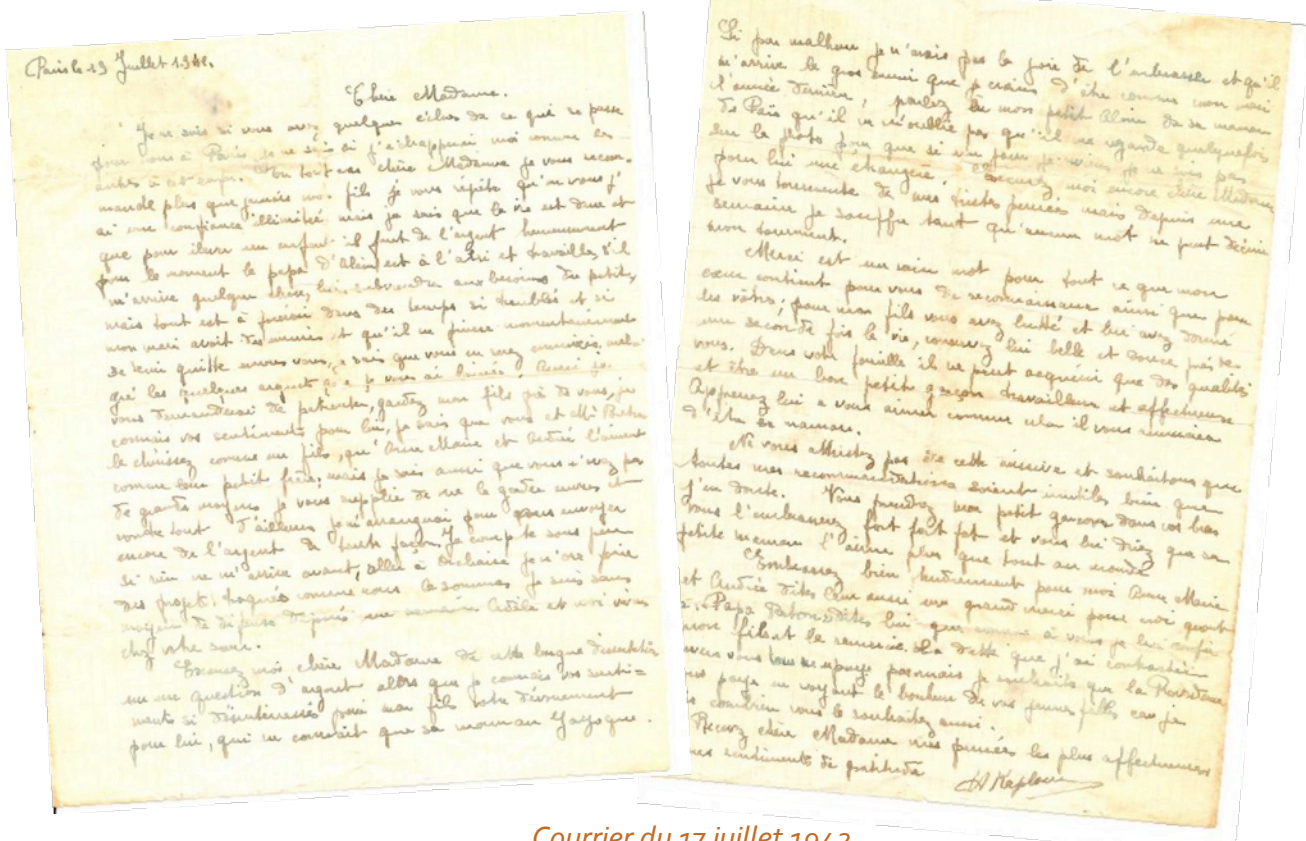 Paris le 19 Juillet 1942.
Chère Madame.
Je ne sais si vous avez quelques échos de ce qui se passe
pour nous à Paris, je ne sais si j'échapperai moi comme les
autres à cet coup. En tout cas chère Madame je vous recom-
mande plus que jamais mon fils je vous répète qu'en vous j'
ai une confiance illimité mais je sais que la vie est dure et
que pour élever un enfant il faut de l'argent heureusement
pour le moment le papa d'Alain est à l'abri et travaille, s'il
m'arrive quelque chose, lui subviendra aux besoins du petit,
mais tout est à prévoir dans des temps si troublés et si
mon mari avait des ennuis et qu'il ne puisse momentanément
se tenir quitte envers vous, je sais que vous en serez mal-
gré les quelques argent que je vous ai laissé. Aussi je
vous demanderai de patienter, gardez mon fils près de vous, je
connais vos sentiments pour lui, je sais que vous et Mr
le chérissez comme un fils, qu'Anne Marie et Andrée l'aiment
comme leur petit frère, mais je sais aussi que vous n'avez pas
de grands moyens je vous supplie de me le garder envers et
contre tout. D'ailleurs je m'arrangerai pour vous envoyer
encore de l'argent de toute façon. Je compte sous peu
si rien ne m'arrive avant, aller à je n'ose faire
des projets, traqués comme nous le sommes je suis sans
moyen de défense depuis une semaine Adèle et moi vivons
chez votre sœur.
Excusez moi chère Madame de cette longue dissertation
sur une question d'argent alors que je connais vos senti=
ments si désintéressés pour mon fils votre dévouement
pour lui, qui ne connait que sa maman
Si par malheur je n'avais pas la joie de l'embrasser et qu'il
m'arrive le gros ennui que je crains d'être comme mon mari
l'année dernière, parlez de mon petit Alain de sa maman
de Paris qu'il ne m'oublie pas qu'il me regarde quelquefois
sur la photo pour que si un jour je reviens je ne sois pas
pour lui une étrangère. Excusez moi encore chère Madame
je vous tourmente de mes tristes pensées mais depuis une
semaine je souffre tant qu'aucun mot ne peut décrire
mon tourment.
Merci est un vain mot pour tout ce que mon
cœur contient pour vous de reconnaissance ainsi que pour
les vôtres; pour mon fils vous avez lutté et lui avez donné
une seconde fois la vie, conservez lui belle et douce près de
vous. Dans votre famille il ne peut acquérir que des qualités
et être un bon petit garçon travailleur et affectueux
Apprenez lui a vous aimer comme cela il vous remerciera
d'être sa maman.
Ne vous attristez pas de cette missive et souhaitons que
toutes mes recommandations soient inutiles bien que
j'en doute. Vous prendrez mon petit garçon dans vos bras
vous l'embrasserez fort fort fort et vous lui direz que sa
petite maman l'aime plus que tout au monde
Embrassez bien tendrement pour moi Anne Marie
et Andrée dites leur aussi un grand merci pour moi quant
à Papa dites lui que comme à vous je lui confie
mon fils et le remercie. La dette que j'ai contractée
envers vous je souhaite que la Providence
vous paye en voyant le bonheur de vos jeunes filles car je
sais combien vous le souhaitez aussi.
Recevez chère Madame mes pensées les plus affectueuses
mes sentiments de gratitude
Kaplan
Courrier du 17 juillet 1942